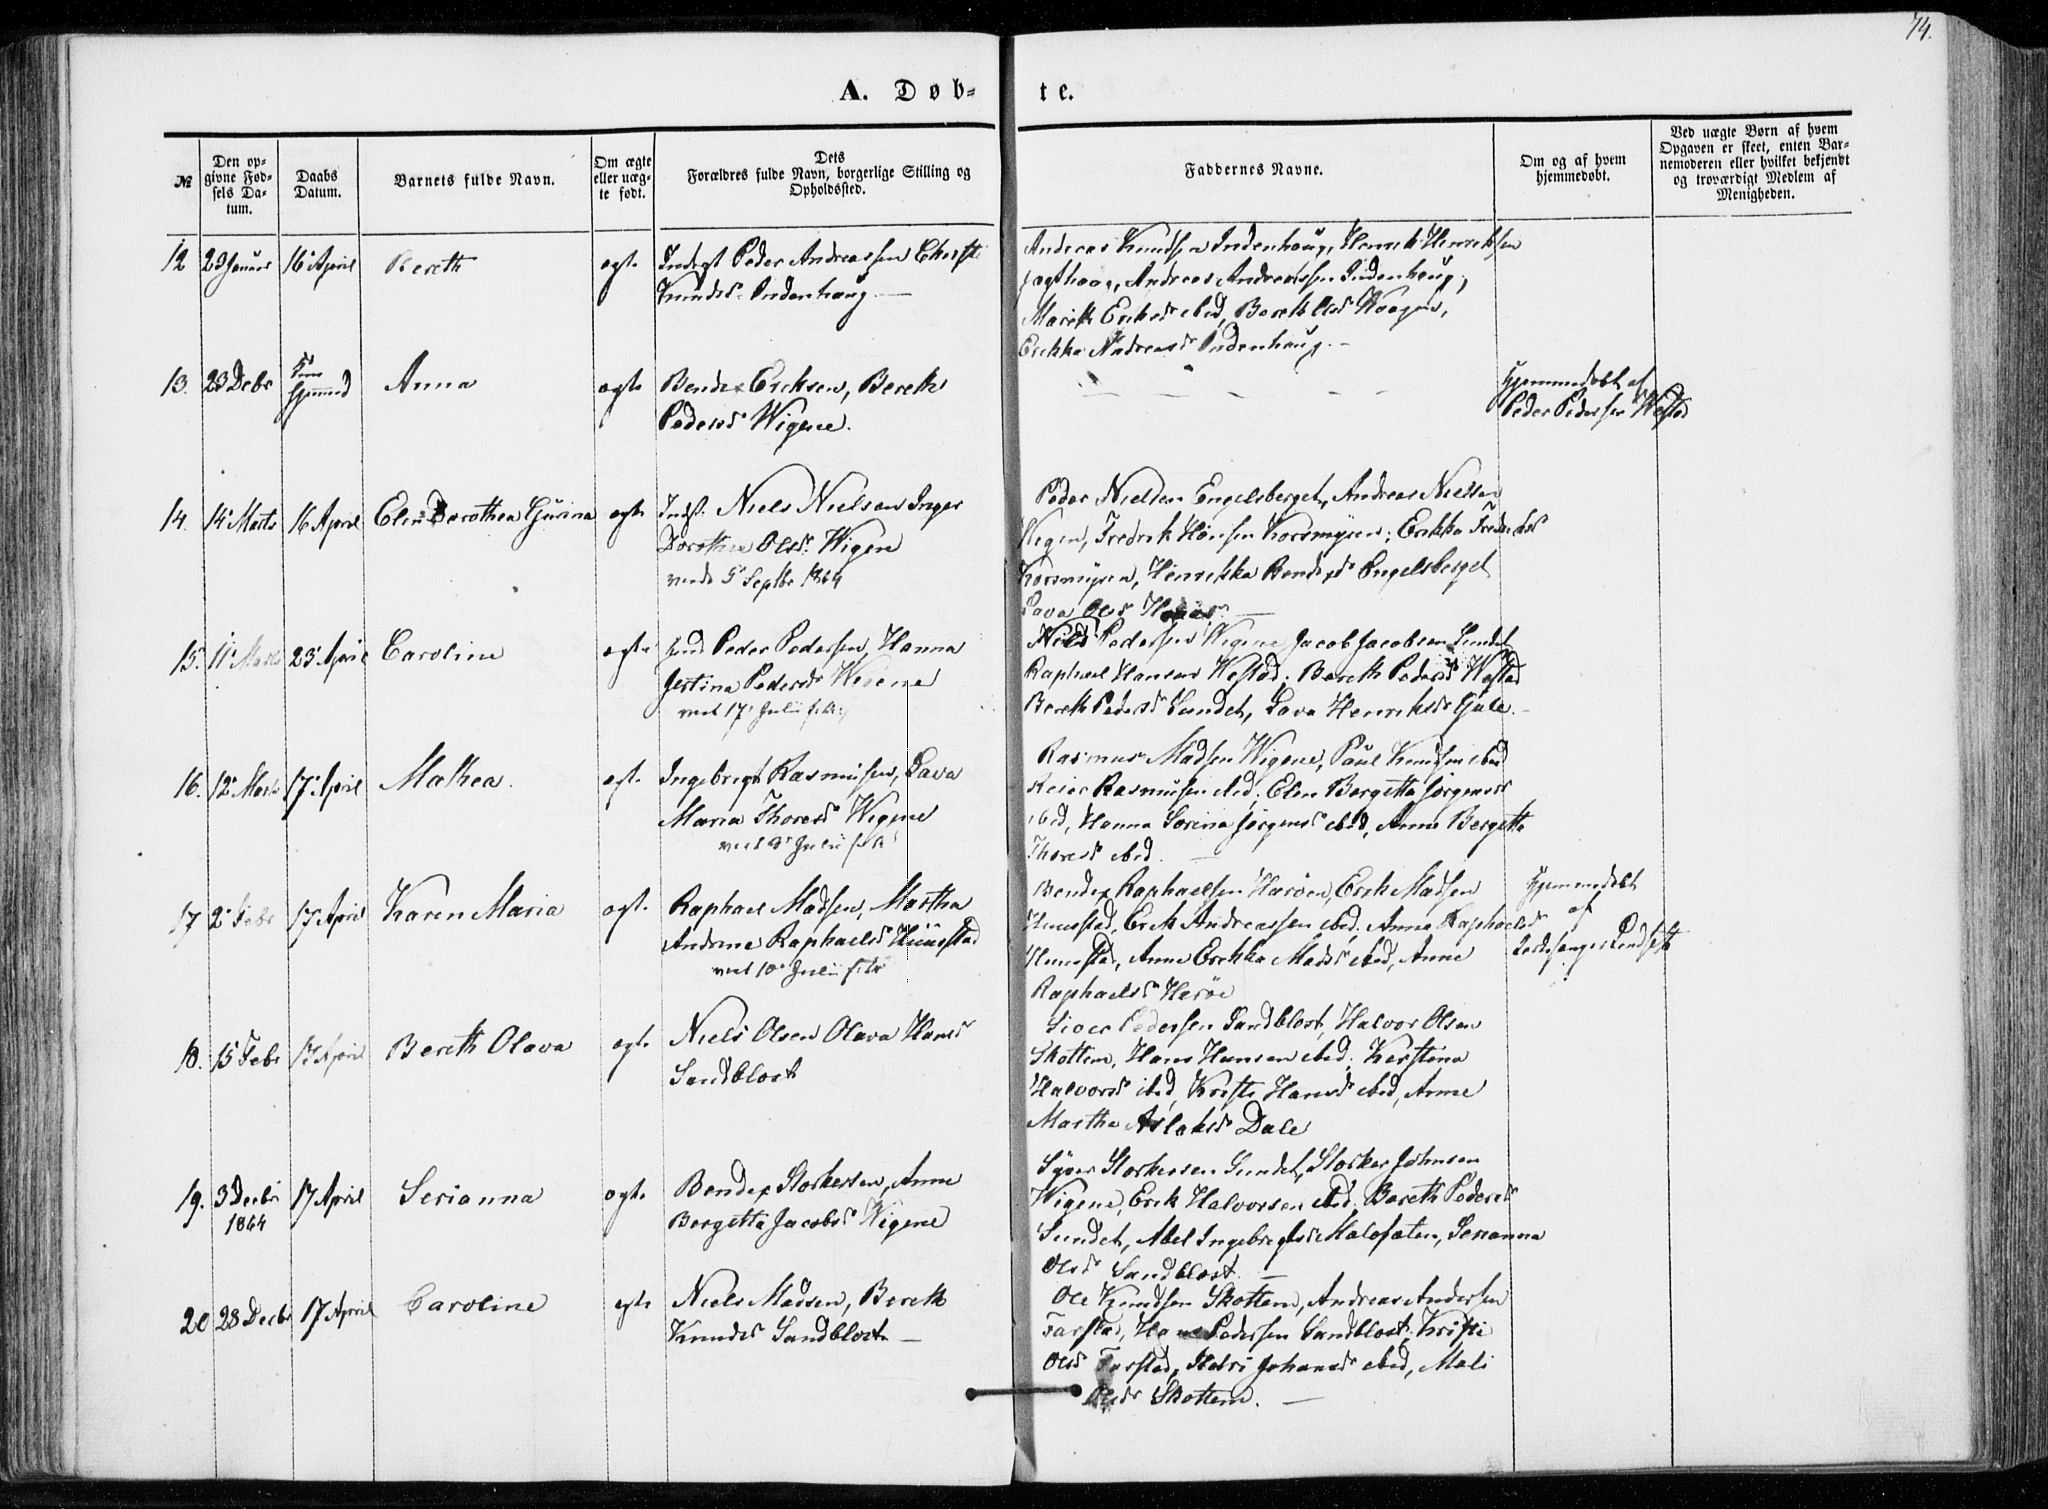 74.
A. Døb-
te.
№
Den op-
givne Fød-
sels Da-
tum.
Daabs
Datum.
Barnets fulde Navn.
Om ægte
eller uæg-
te født.
Dets
Forældres fulde Navn, borgerlige Stilling og
Opholdssted.
Faddernes Navne.
Om og af hvem
hjemmedøbt.
Ved uægte Børn af hvem
Opgaven er skeet, enten Bar-
nemoderen eller hvilket bekjendt
og troværdigt Medlem af
Menigheden.
12 29 Januar 16 April Bereth ægte Peder Andreassen
Knudsd. Indenhaug.—
Andreas Knudsen Indenhaug, Henrik Henriksen
Andreas Andreassen Indenhaug,
Marith Eriksd ibid, Bereth Olsd
Erikka Andreasd Indenhaug.—
13. 23 Debr Anna ægte Bendix Ericksen, Bereth
Pedersd Wigene.
Hjemmedøbt af
Peder Pedersen Westad
14. 14 Marts 16 April Elen Dorothea Gurina ægte Indst. Niels Nielsen Inger
Dorthea Olsd. Wigen
viede 5 Septbr 1864
Peder Nielsen Engelsberget, Andreas Nielsen
Wigen, Fredrik Hansen Korsmyren; Erikka Fredriksd
Korsmyren, Henrikka Bendixd Engelsberget
Lava Olsd
15. 11 Marts 23 April Caroline ægte Peder Pedersen, Hanna
Jestina Pedersd Wigene
viet 17 Julii f. A.
Niels Pedersen Wigene, Jacob Jacobsen Sundet
Raphael Hansen Westad, Bereth Pedersd Westad
Bereth Pedersd Sundet, Lava Henriksd Gule.—
16. 12 Marts 17 April Mathea. ægte Ingebrigt Rasmusen, Lava
Maria Thoresd Wigene
viet Julii f. A
Rasmus Madsen Wigene, Paul Knudsen ibid
Reier Rasmusen ibid, Elen Bergetta Jørgensd
ibid, Hanna Serina Jørgensd ibid, Anne Bergetta
Thoresd ibid.—
17 2 Febr 17 April Karen Maria ægte Raphael Madsen, Martha
Andrine Raphaelsd Huustad
viet 10 Julii f. A
Bendix Raphaelsen Harøen, Erik Madsen
Huustad, Erik Andreassen ibid, Anna Raphaelsd
Huustad, Anne Erikka Madsd ibid, Anne
Raphaelsd Harøe
Hjemmedøbt
af
18. 15 Febr 17 April Bereth Olava ægte Niels Olsen Olava Hansd
Sandblost
Siver Pedersen Sandblost, Halvor Olsen
Skottem, Hans Hansen ibid, Kerstina
Halvorsd ibid, Kristi Hansd ibid, Anne
Martha Aslaksd Dale
19. 3 Decbr 17 April Serianna ægte Bendix Storkersen, Anne
1864
Bergetta Jacobsd Wigene
Syver Storkersen Sundet, Storker Johnsen
Wigene, Erik Halvorsen ibid, Bereth Pedersd
Sundet, Abel Ingebrigtsd Malefeten, Serianna
Olsd Sandblost—
20 28 Decbr 17 April Caroline ægte Niels Madsen, Bereth
Knudsd Sandblost—
Ole Knudsen Skottem, Andreas Andersen
Farstad, Pedersen Sandblost, Kristi
Olsd Farstad, Johansd ibid, Mali
Olsd Skottem.—